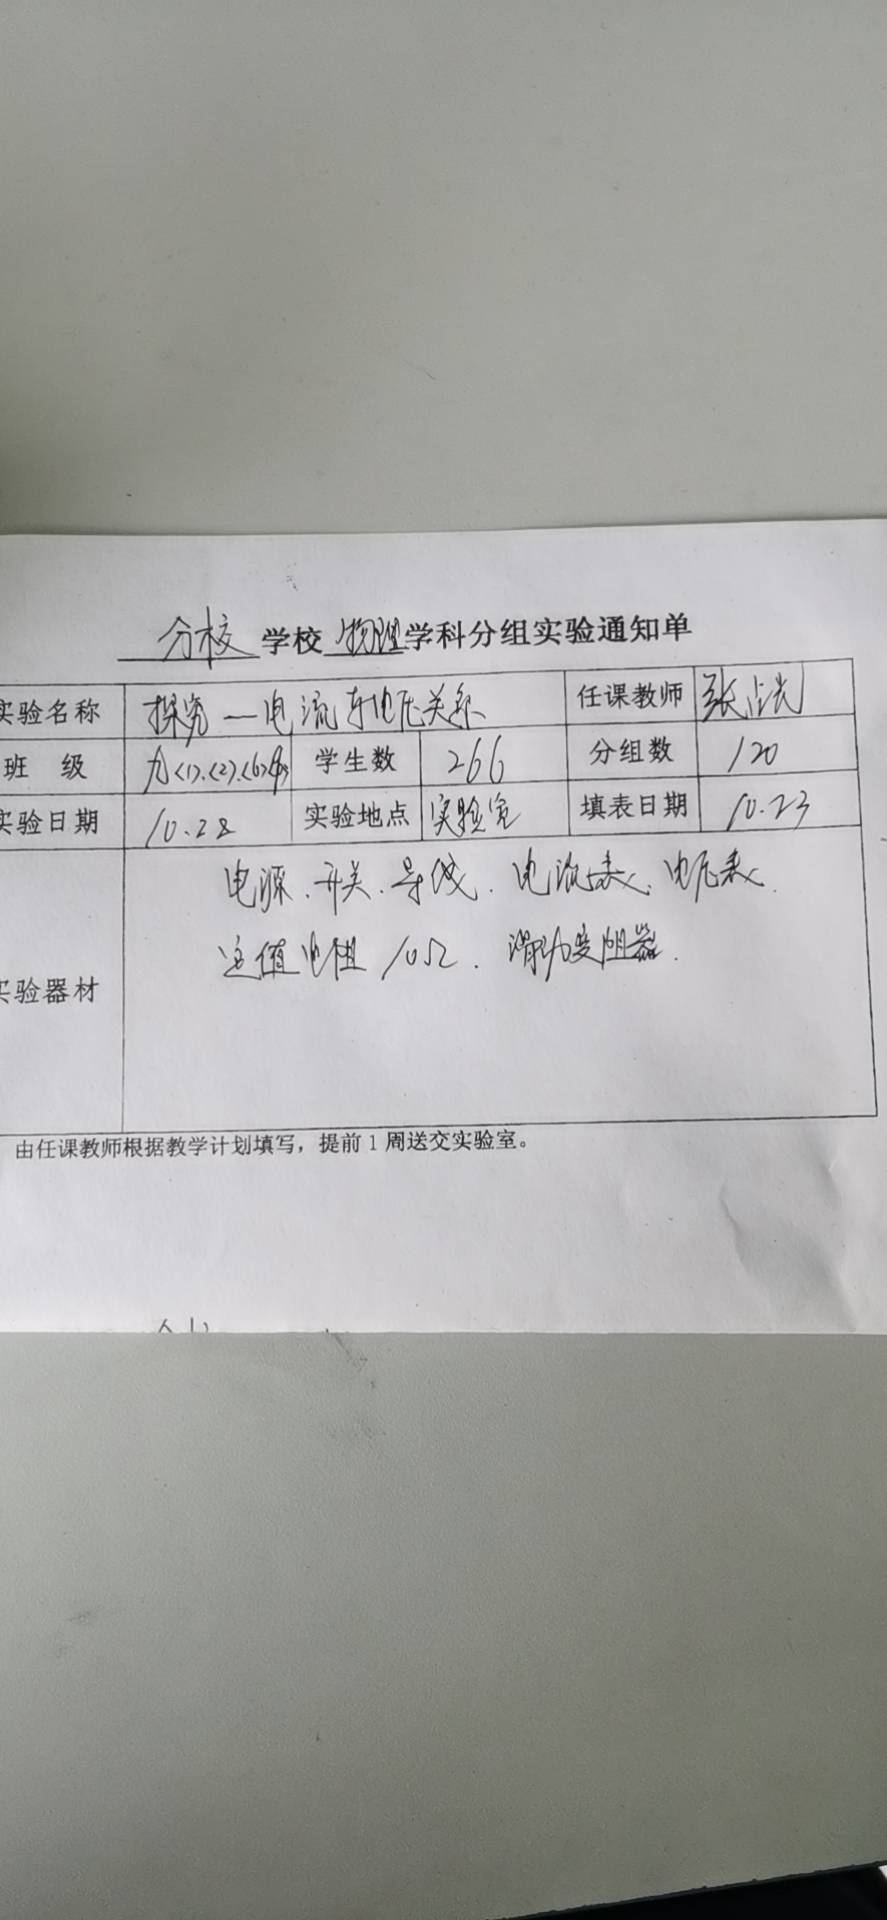 分校 学校 物理 学科分组实验通知单
实验名称 探究—电流与电压关系 任课教师 张占光
班 级 九<1>.<2>.<6> 学生数 266 分组数 120
实验日期 10.28 实验地点 实验室 填表日期 10.23
电源.开关.导线.电流表.电压表.
实验器材 定值电阻10Ω.滑动变阻器.
由任课教师根据教学计划填写，提前1周送交实验室。